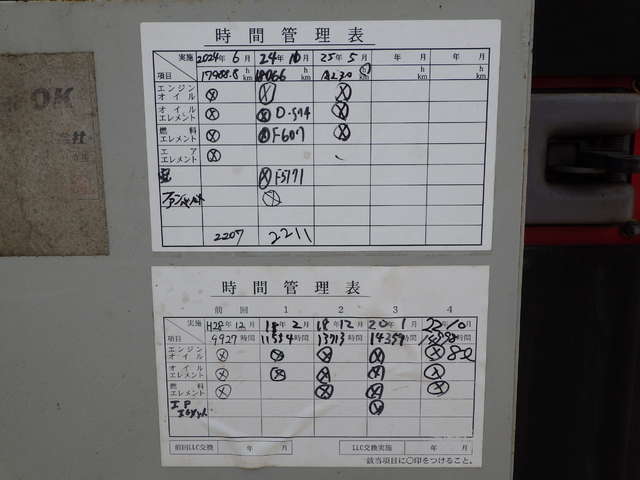 OK
会社
時間管理表
実施 2024年 6月 24年 10月 25年 5月 年 月 年 月
項目 17988.8 h km 18066 h km h km h km h km
エンジンオイル ⓧ ⓧ ⓧ
オイルエレメント ⓧ ⓧ O-574 ⓧ
燃料エレメント ⓧ ⓧ F607 ⓧ
エアエレメント ⓧ
ⓧ F5171
ファンベルト ⓧ
2207 2211
時間管理表
前回 1 2 3 4
実施 H28年 12月 18年 2月 18年 12月 20年 1月 22年 10月
項目 9927時間 11534時間 13713時間 14359時間 時間
エンジンオイル ⓧ ⓧ ⓧ ⓧ ⓧ
オイルエレメント ⓧ ⓧ ⓧ ⓧ ⓧ
燃料エレメント ⓧ ⓧ ⓧ ⓧ
エア エレメント ⓧ
前回LLC交換 年 月 LLC交換実施 年 月
該当項目に○印をつけること。